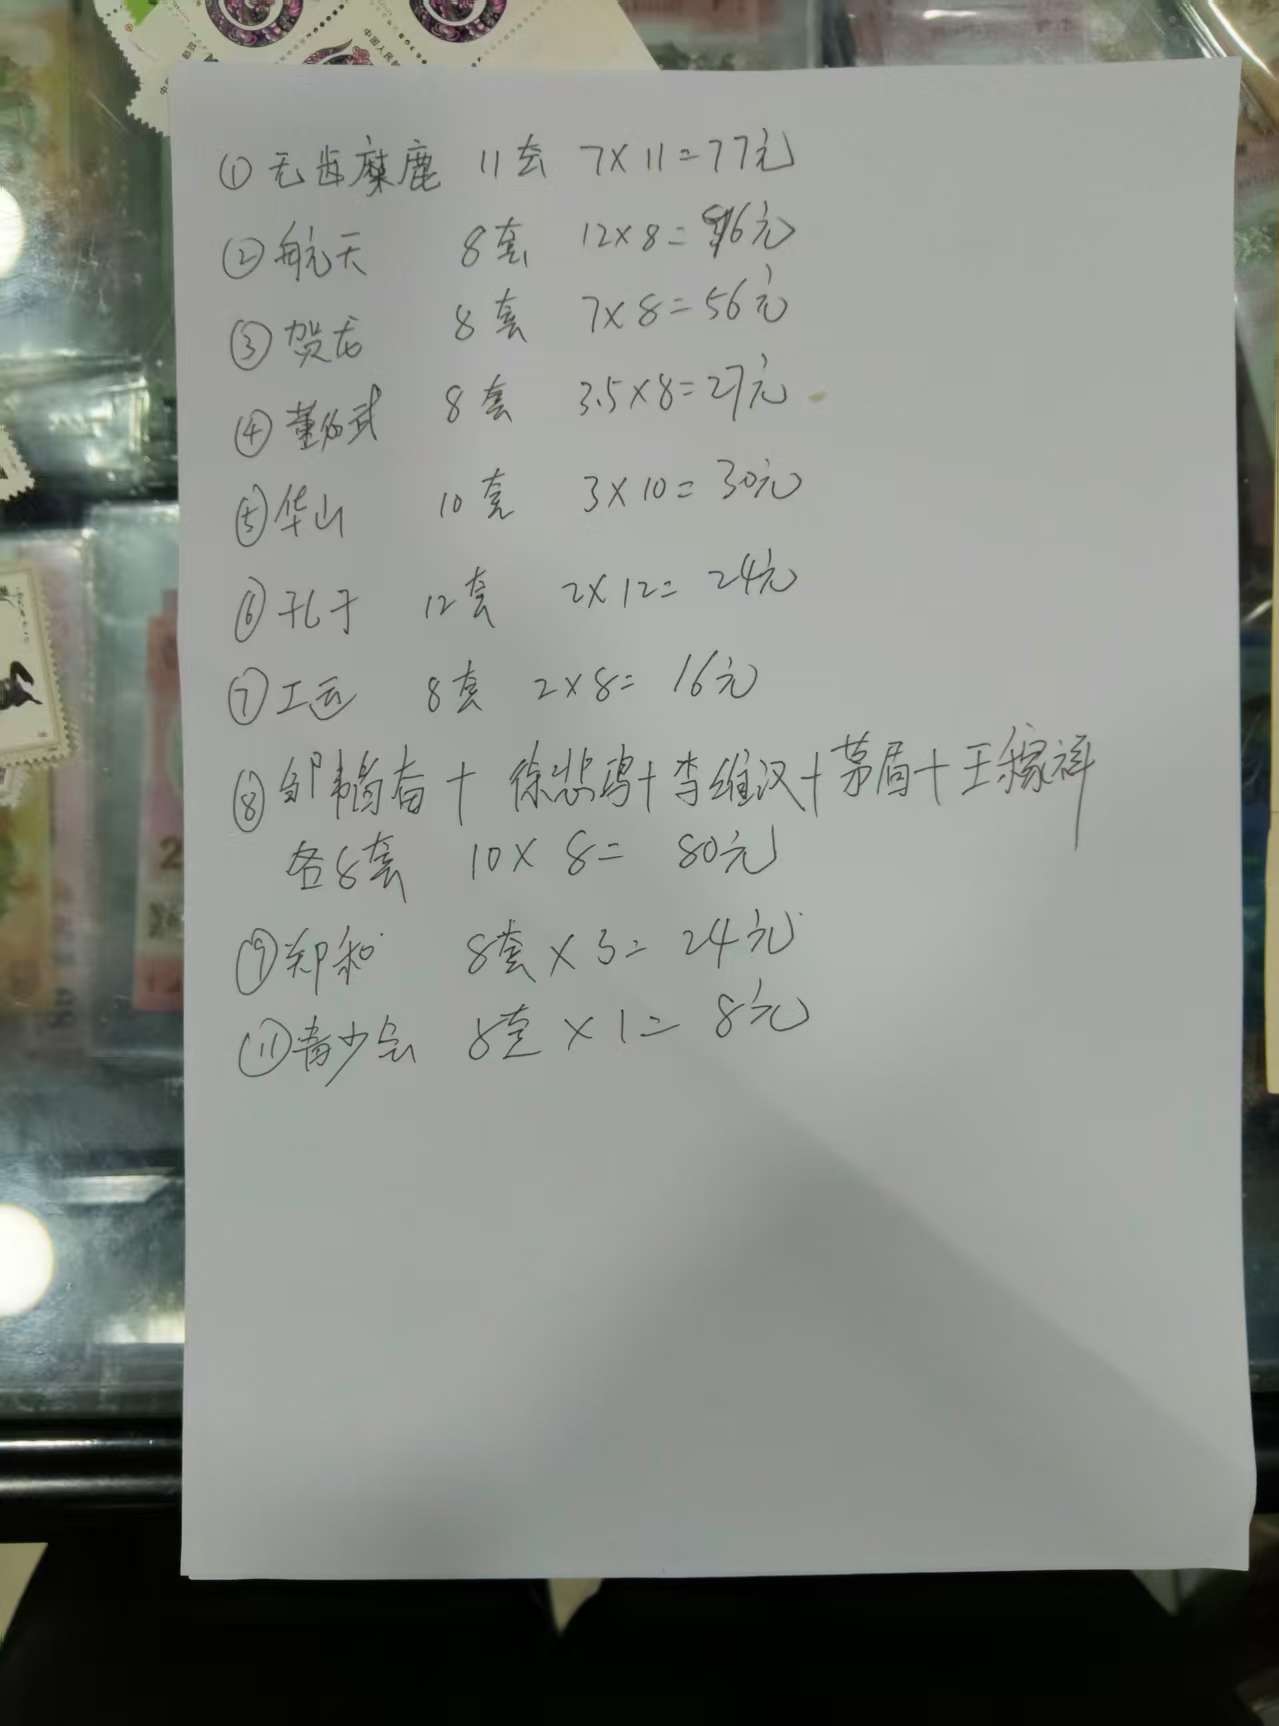 中国人民邮政
① 无齿麋鹿 11套 7×11=77元
② 航天 8套 12×8=96元
③ 贺龙 8套 7×8=56元
④ 董必武 8套 3.5×8=27元
⑤ 华山 10套 3×10=30元
⑥ 孔子 12套 2×12=24元
⑦ 工运 8套 2×8=16元
⑧ 邹韬奋+徐悲鸿+李维汉+茅盾+王稼祥
各8套 10×8=80元
⑨ 郑和 8套×3=24元
⑪ 青少会 8套×1=8元